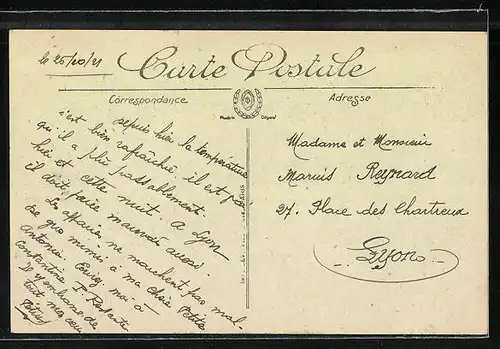 le 26/10/21
Carte Postale
Correspondance
Adresse
depuis hier la température
s'est bien rafraichie, il est
qu'il a plu passablement
hier et cette nuit. A Lyon
il doit faire mauvais aussi.
Les affaires ne marchent pas mal
à ma chère Petite
Antonia. moi à
Constantine
Je t'embrasse de
tout mon cœur
Madame et Monsieur
Marius Reynard
27, Place des Chartreux
Lyon